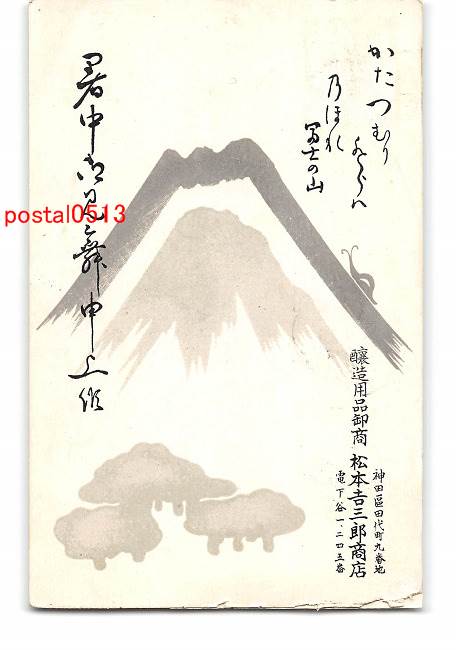 かたつむり
そろ〳〵
乃ほれ
冨士の山
暑中御見舞申上候
醸造用品卸商
松本吉三郎商店
神田區田代町九番地
電下谷一、二四五番
postal0513